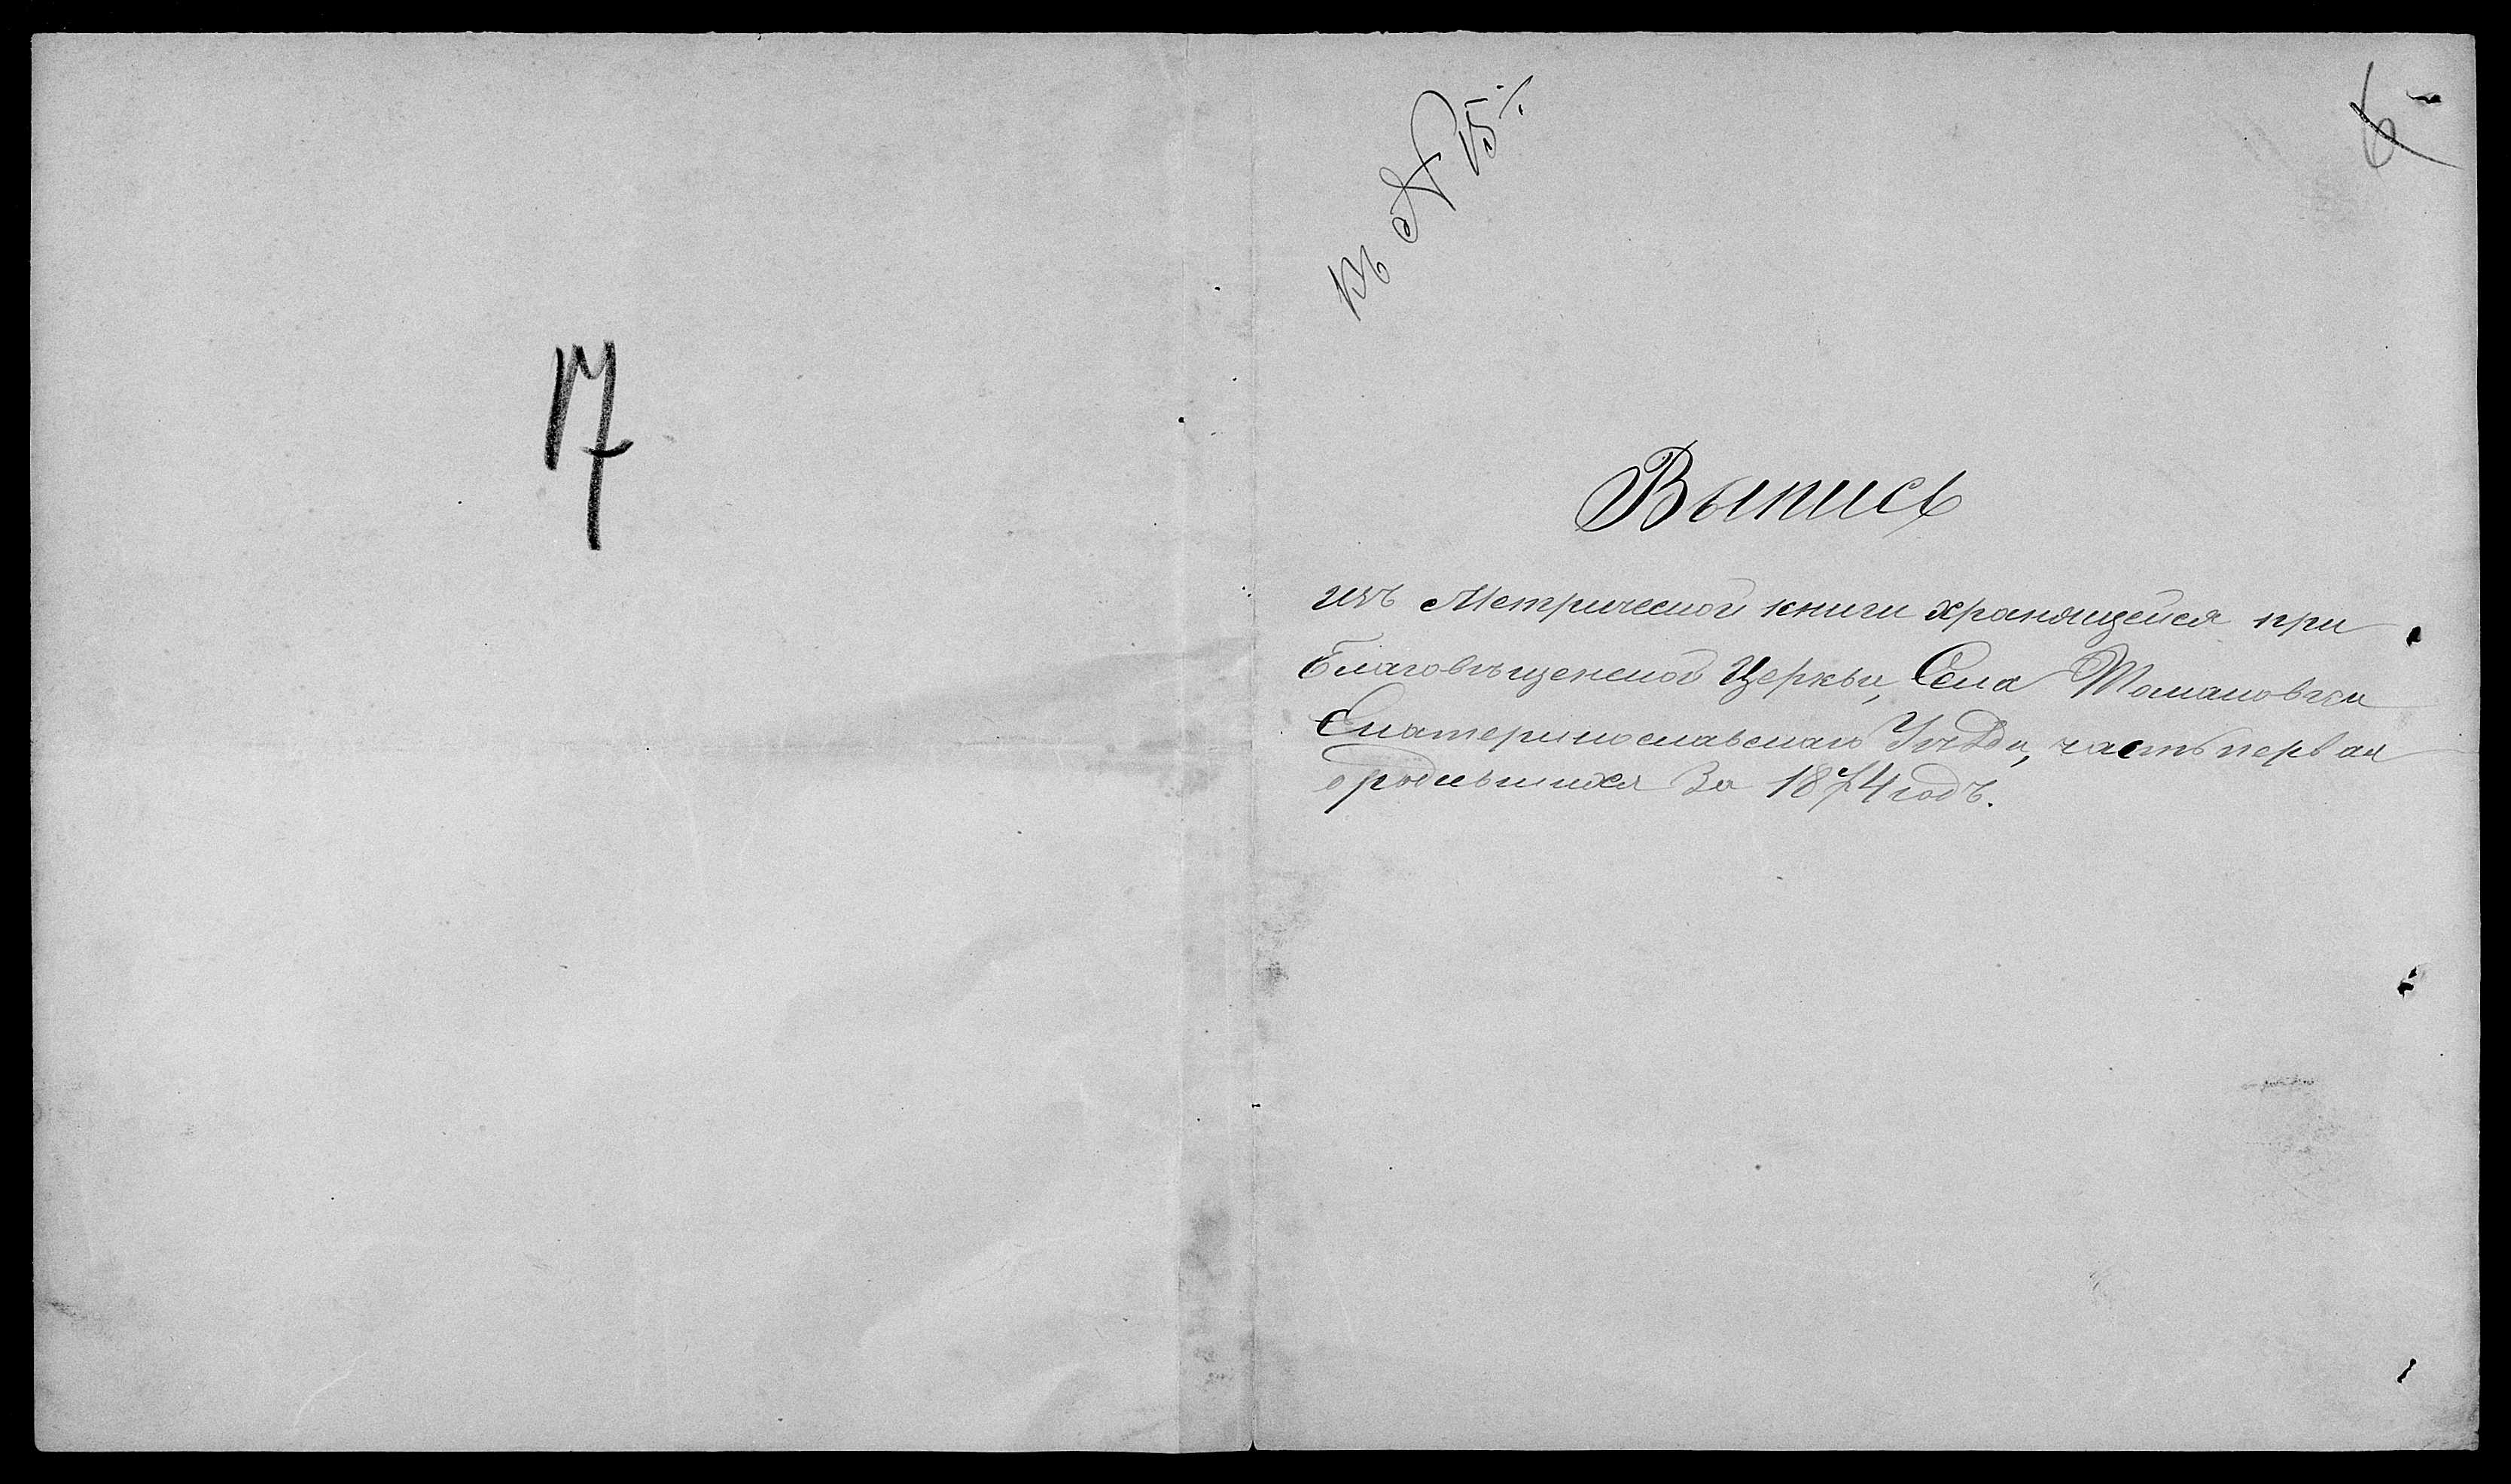 17
къ № 15.
6
Выпись
изъ Метрической книги хранящейся при
Благовѣщенской Церкви, Села Томаковки
Екатеринославскаго Уѣзда, часть первая
о родившихся За 1874 годъ.